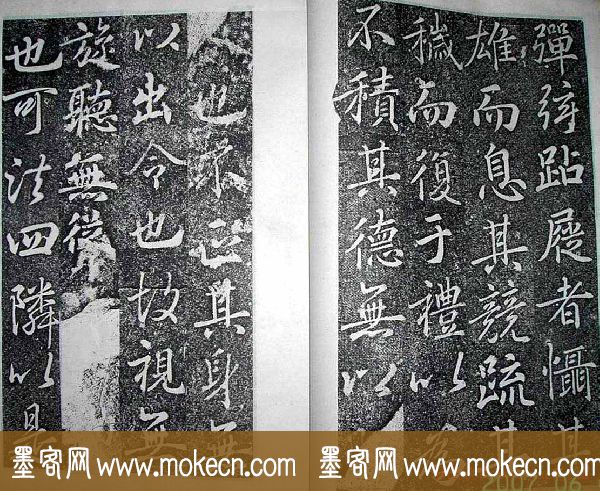 彈弦跕屣者懾其
雄而息其競疏其
穢而復于禮以
不積其德無以
也不正其身無
以出令也故視無
旋聽無從
也可法四隣以是
墨客网 www.mokecn.com 墨客网 www.mokecn.com
2007 06